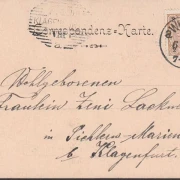 Correspondenz-Karte.
Wohlgeborenen
Fräulein Zeni Lackn
in Pichlern-Marien
b/ Klagenfurt.